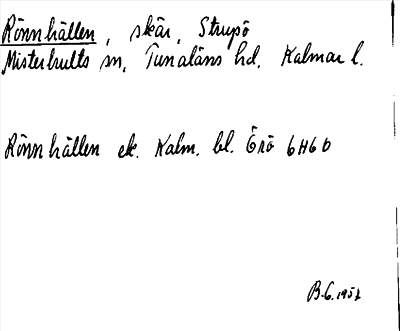 Rönnhällen, skär, Strupö
Misterhults sn, Tunaläns hd. Kalmar l.
Rönnhällen ek. Kalm. bl. Örö 6H6b
B.G. 1951